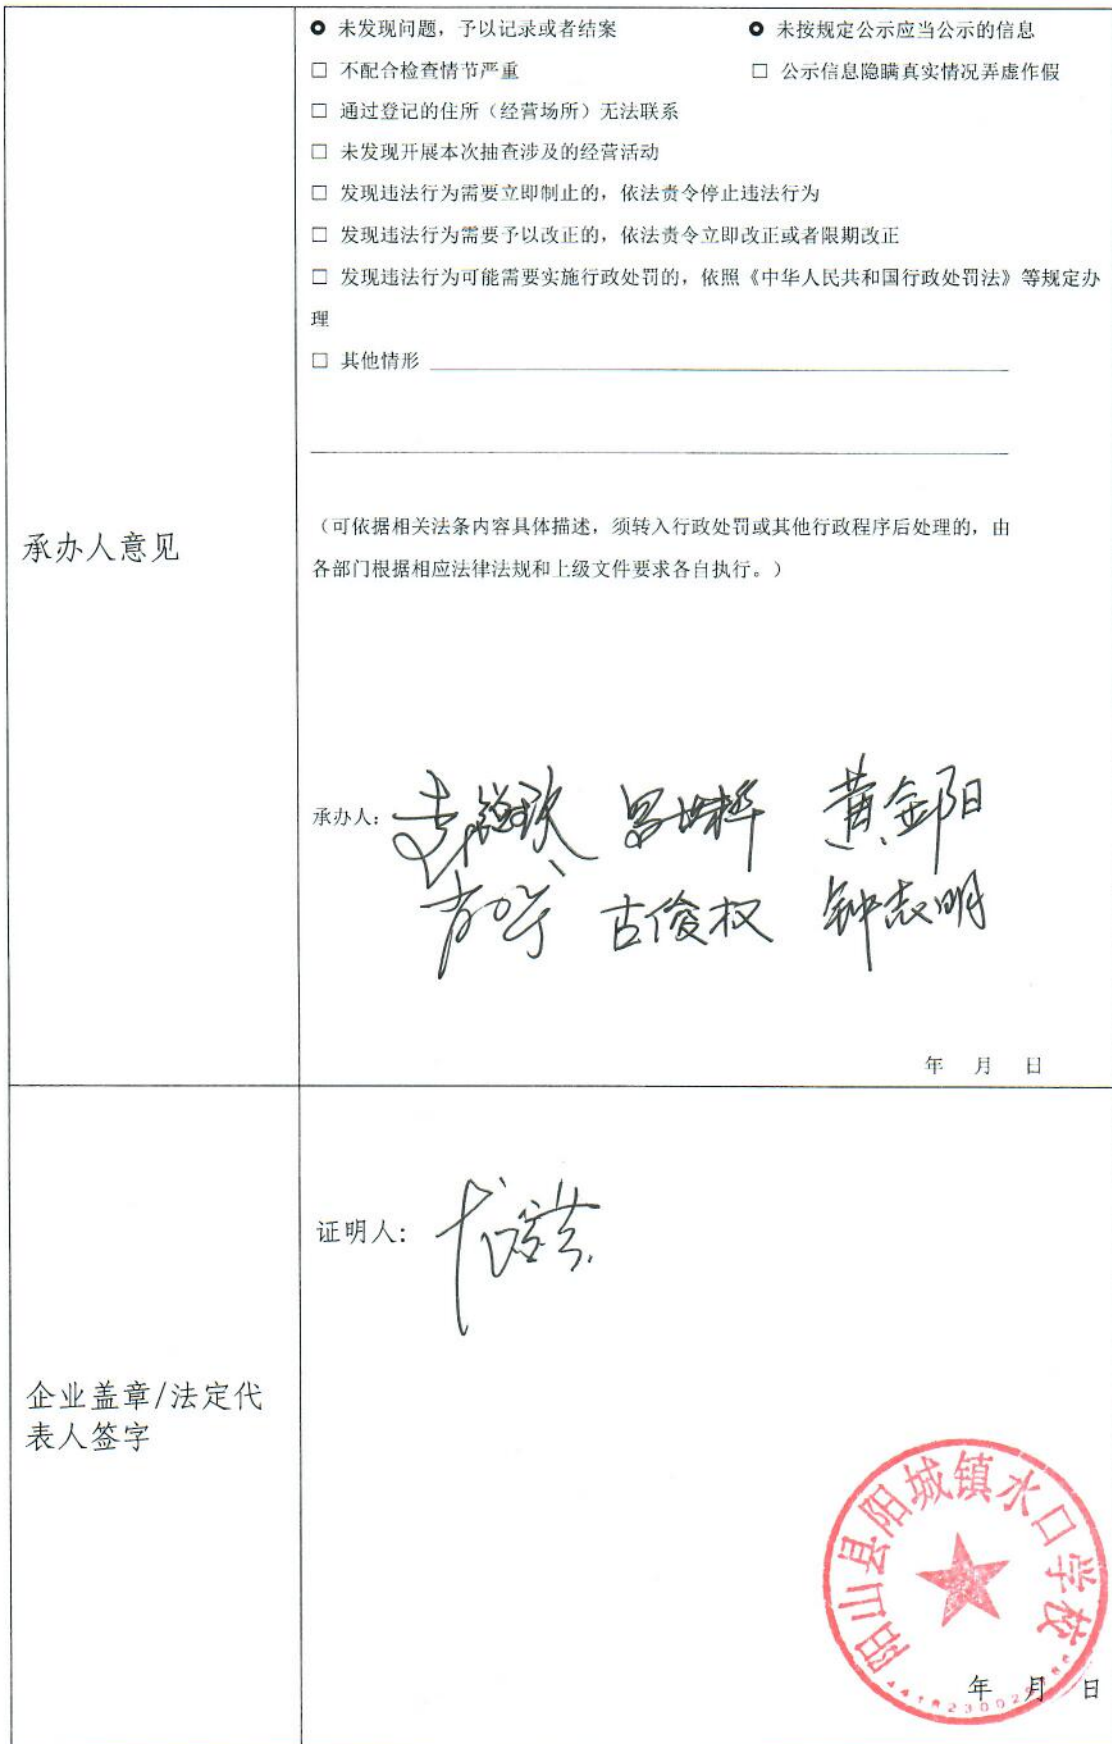 未发现问题，予以记录或者结案 未按规定公示应当公示的信息
□ 不配合检查情节严重 □ 公示信息隐瞒真实情况弄虚作假
□ 通过登记的住所（经营场所）无法联系
□ 未发现开展本次抽查涉及的经营活动
□ 发现违法行为需要立即制止的，依法责令停止违法行为
□ 发现违法行为需要予以改正的，依法责令立即改正或者限期改正
□ 发现违法行为可能需要实施行政处罚的，依照《中华人民共和国行政处罚法》等规定办
理
□ 其他情形
承办人意见
（可依据相关法条内容具体描述，须转入行政处罚或其他行政程序后处理的，由
各部门根据相应法律法规和上级文件要求各自执行。）
承办人： 黄金阳
古俊权 钟志明
年 月 日
证明人：
企业盖章/法定代
表人签字
阳山县阳城镇水口学校
年 月 日